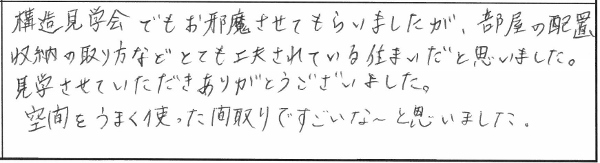 構造見学会でもお邪魔させてもらいましたが、部屋の配置
収納の取り方などとても工夫されている住まいだと思いました。
見学させていただきありがとうございました。
空間をうまく使った間取りですごいな～と思いました。